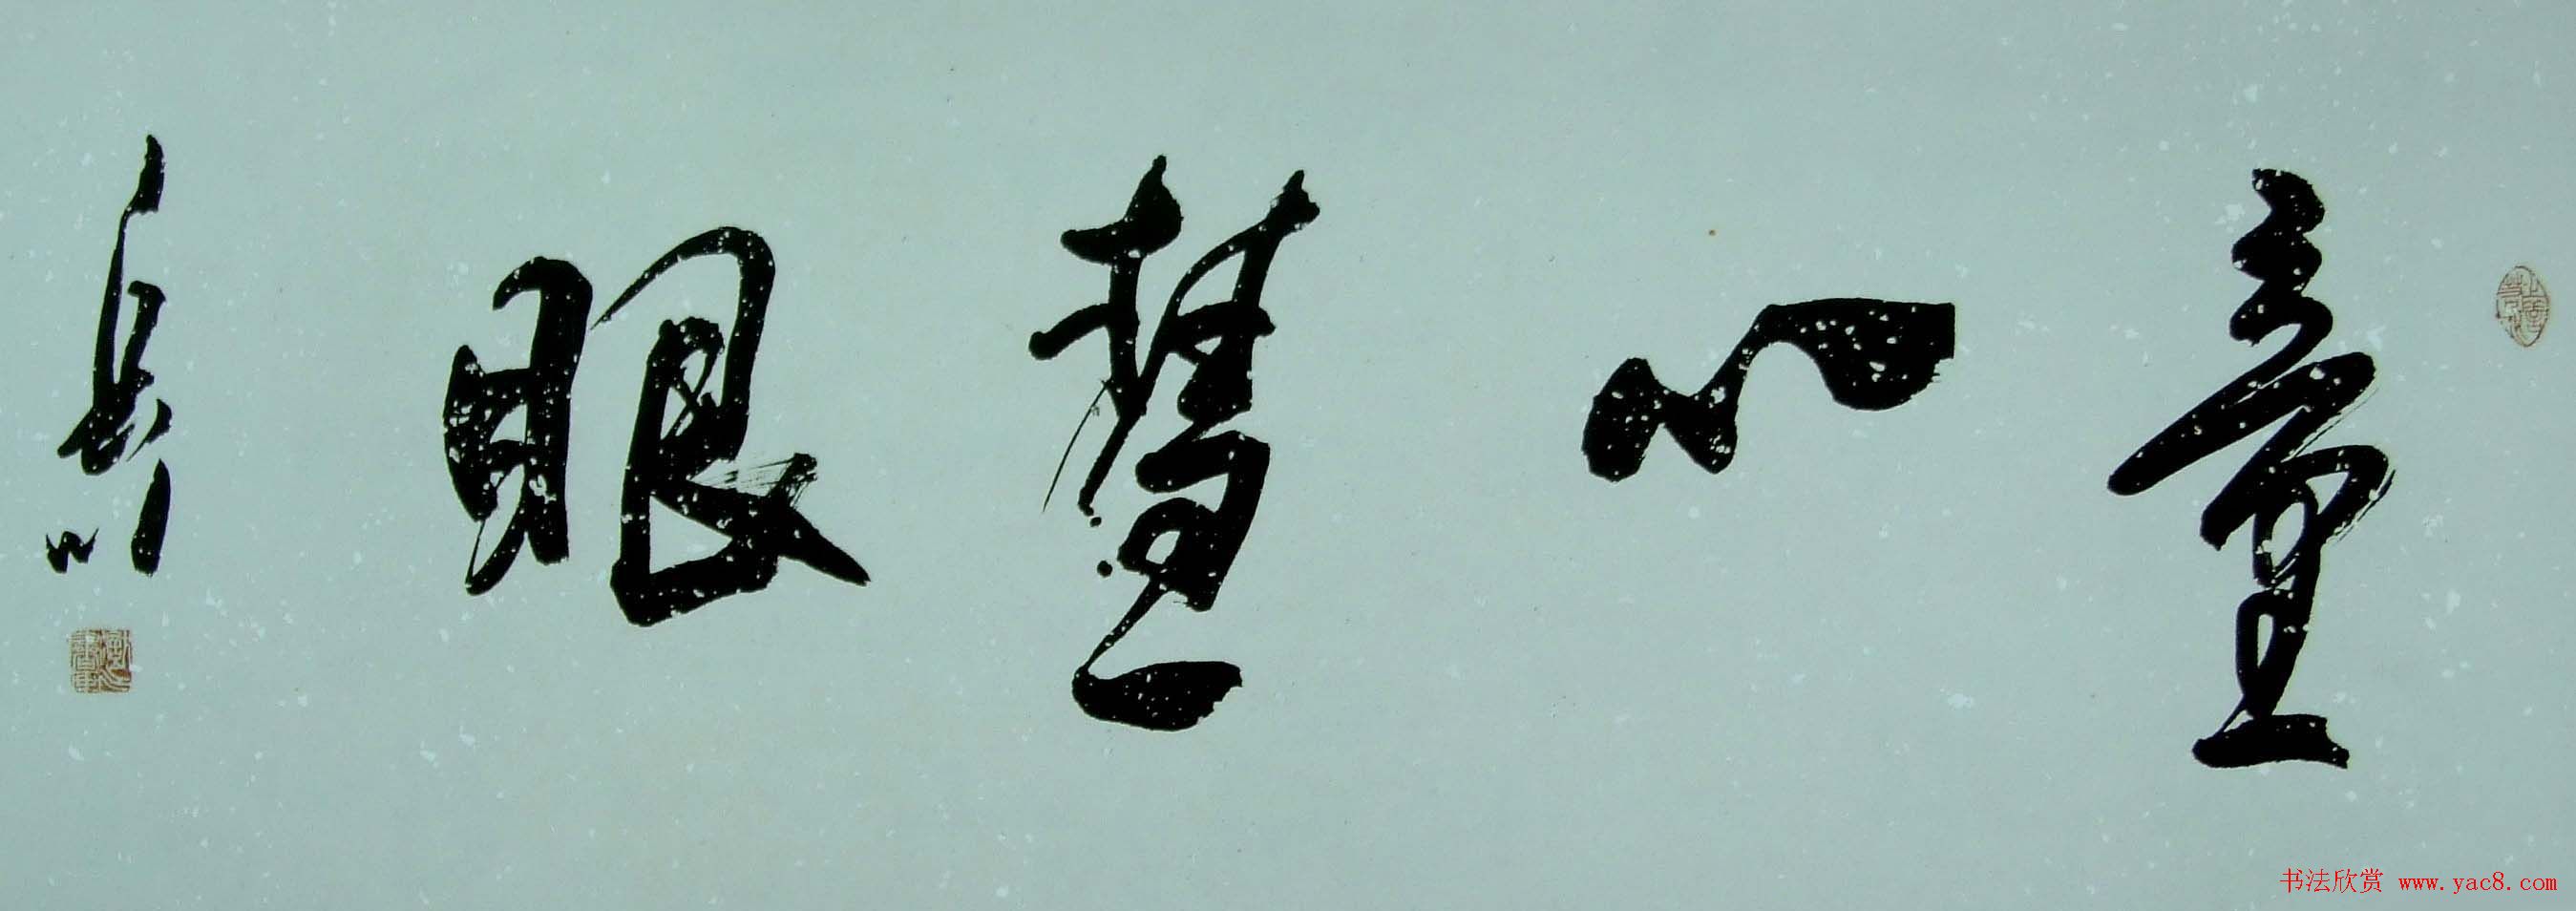 童心慧眼
书法欣赏 www.yac8.com